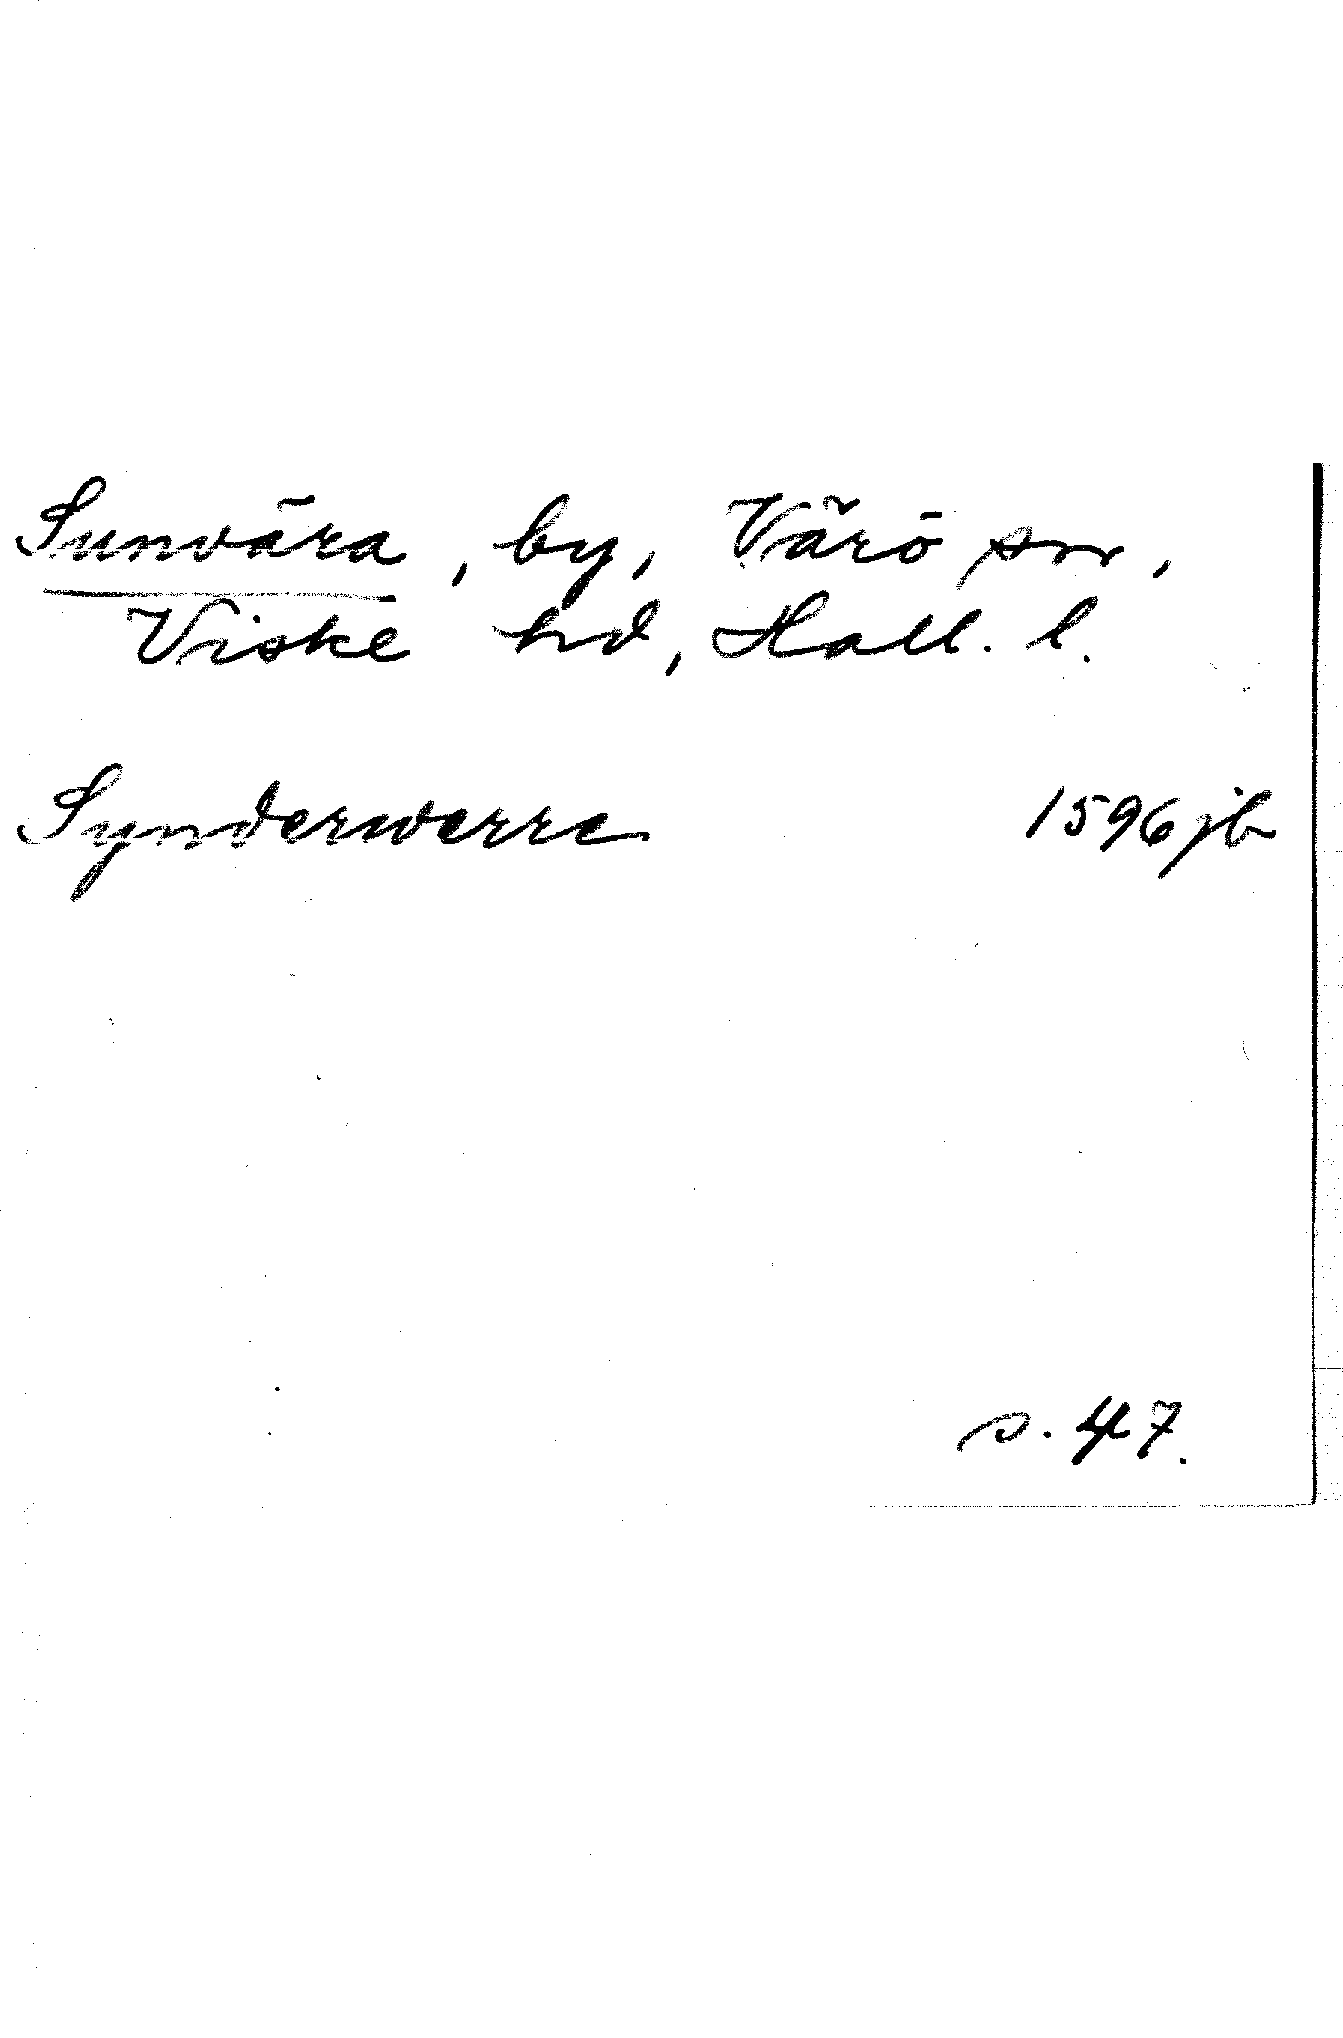 Sunvära, by, Värö sn,
Viske hd, Hall. l.
Synderwerre 1596 jb
s. 47.